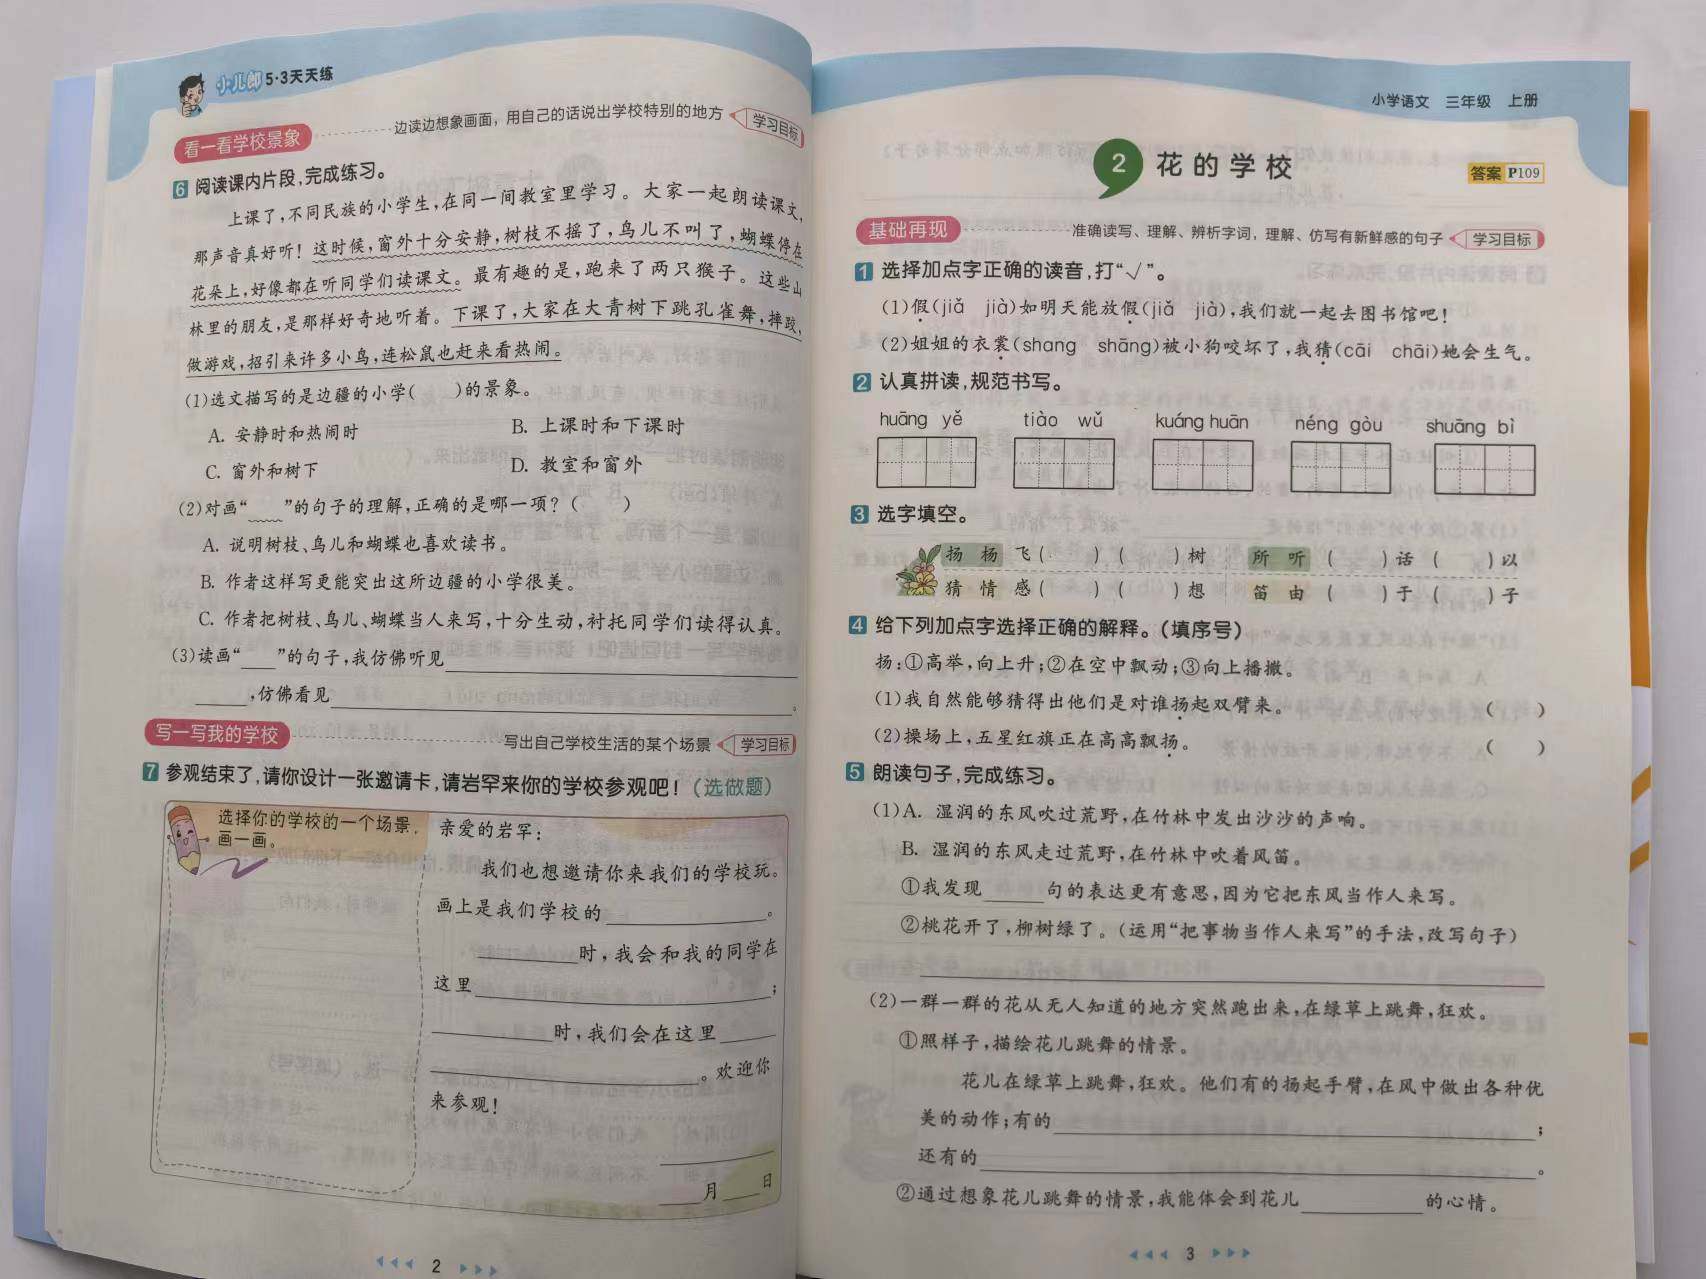 小儿郎 5·3天天练
看一看学校景象 边读边想象画面，用自己的话说出学校特别的地方 学习目标
6 阅读课内片段,完成练习。
上课了,不同民族的小学生,在同一间教室里学习。大家一起朗读课文,
那声音真好听！这时候,窗外十分安静,树枝不摇了,鸟儿不叫了,蝴蝶停在
花朵上,好像都在听同学们读课文。最有趣的是,跑来了两只猴子。这些山
林里的朋友,是那样好奇地听着。下课了,大家在大青树下跳孔雀舞,摔跤,
做游戏,招引来许多小鸟,连松鼠也赶来看热闹。
(1)选文描写的是边疆的小学( )的景象。
A. 安静时和热闹时 B. 上课时和下课时
C. 窗外和树下 D. 教室和窗外
(2)对画“____”的句子的理解,正确的是哪一项？( )
A. 说明树枝、鸟儿和蝴蝶也喜欢读书。
B. 作者这样写更能突出这所边疆的小学很美。
C. 作者把树枝、鸟儿、蝴蝶当人来写,十分生动,衬托同学们读得认真。
(3)读画“____”的句子,我仿佛听见____
____,仿佛看见____。
写一写我的学校 写出自己学校生活的某个场景 学习目标
7 参观结束了,请你设计一张邀请卡,请岩罕来你的学校参观吧！(选做题)
选择你的学校的一个场景,
画一画。
亲爱的岩罕：
我们也想邀请你来我们的学校玩。
画上是我们学校的____。
____时,我会和我的同学在
这里____；
____时,我们会在这里____
____。欢迎你
来参观！
____
____月____日
2
小学语文 三年级 上册
2 花的学校 答案P109
基础再现 准确读写、理解、辨析字词，理解、仿写有新鲜感的句子 学习目标
1 选择加点字正确的读音,打“√”。
(1)假(jiǎ jià)如明天能放假(jiǎ jià),我们就一起去图书馆吧！
(2)姐姐的衣裳(shang shāng)被小狗咬坏了,我猜(cāi chāi)她会生气。
2 认真拼读,规范书写。
huāng yě tiào wǔ kuáng huān néng gòu shuāng bì
3 选字填空。
扬 杨 飞( ) ( )树 所 听 ( )话 ( )以
猜 情 感( ) ( )想 笛 由 ( )于 ( )子
4 给下列加点字选择正确的解释。(填序号)
扬：①高举,向上升；②在空中飘动；③向上播撒。
(1)我自然能够猜得出他们是对谁扬起双臂来。 ( )
(2)操场上,五星红旗正在高高飘扬。 ( )
5 朗读句子,完成练习。
(1)A. 湿润的东风吹过荒野,在竹林中发出沙沙的声响。
B. 湿润的东风走过荒野,在竹林中吹着风笛。
①我发现____句的表达更有意思,因为它把东风当作人来写。
②桃花开了,柳树绿了。(运用“把事物当作人来写”的手法,改写句子)
____
(2)一群一群的花从无人知道的地方突然跑出来,在绿草上跳舞,狂欢。
①照样子,描绘花儿跳舞的情景。
花儿在绿草上跳舞,狂欢。他们有的扬起手臂,在风中做出各种优
美的动作；有的____；
还有的____。
②通过想象花儿跳舞的情景,我能体会到花儿____的心情。
3